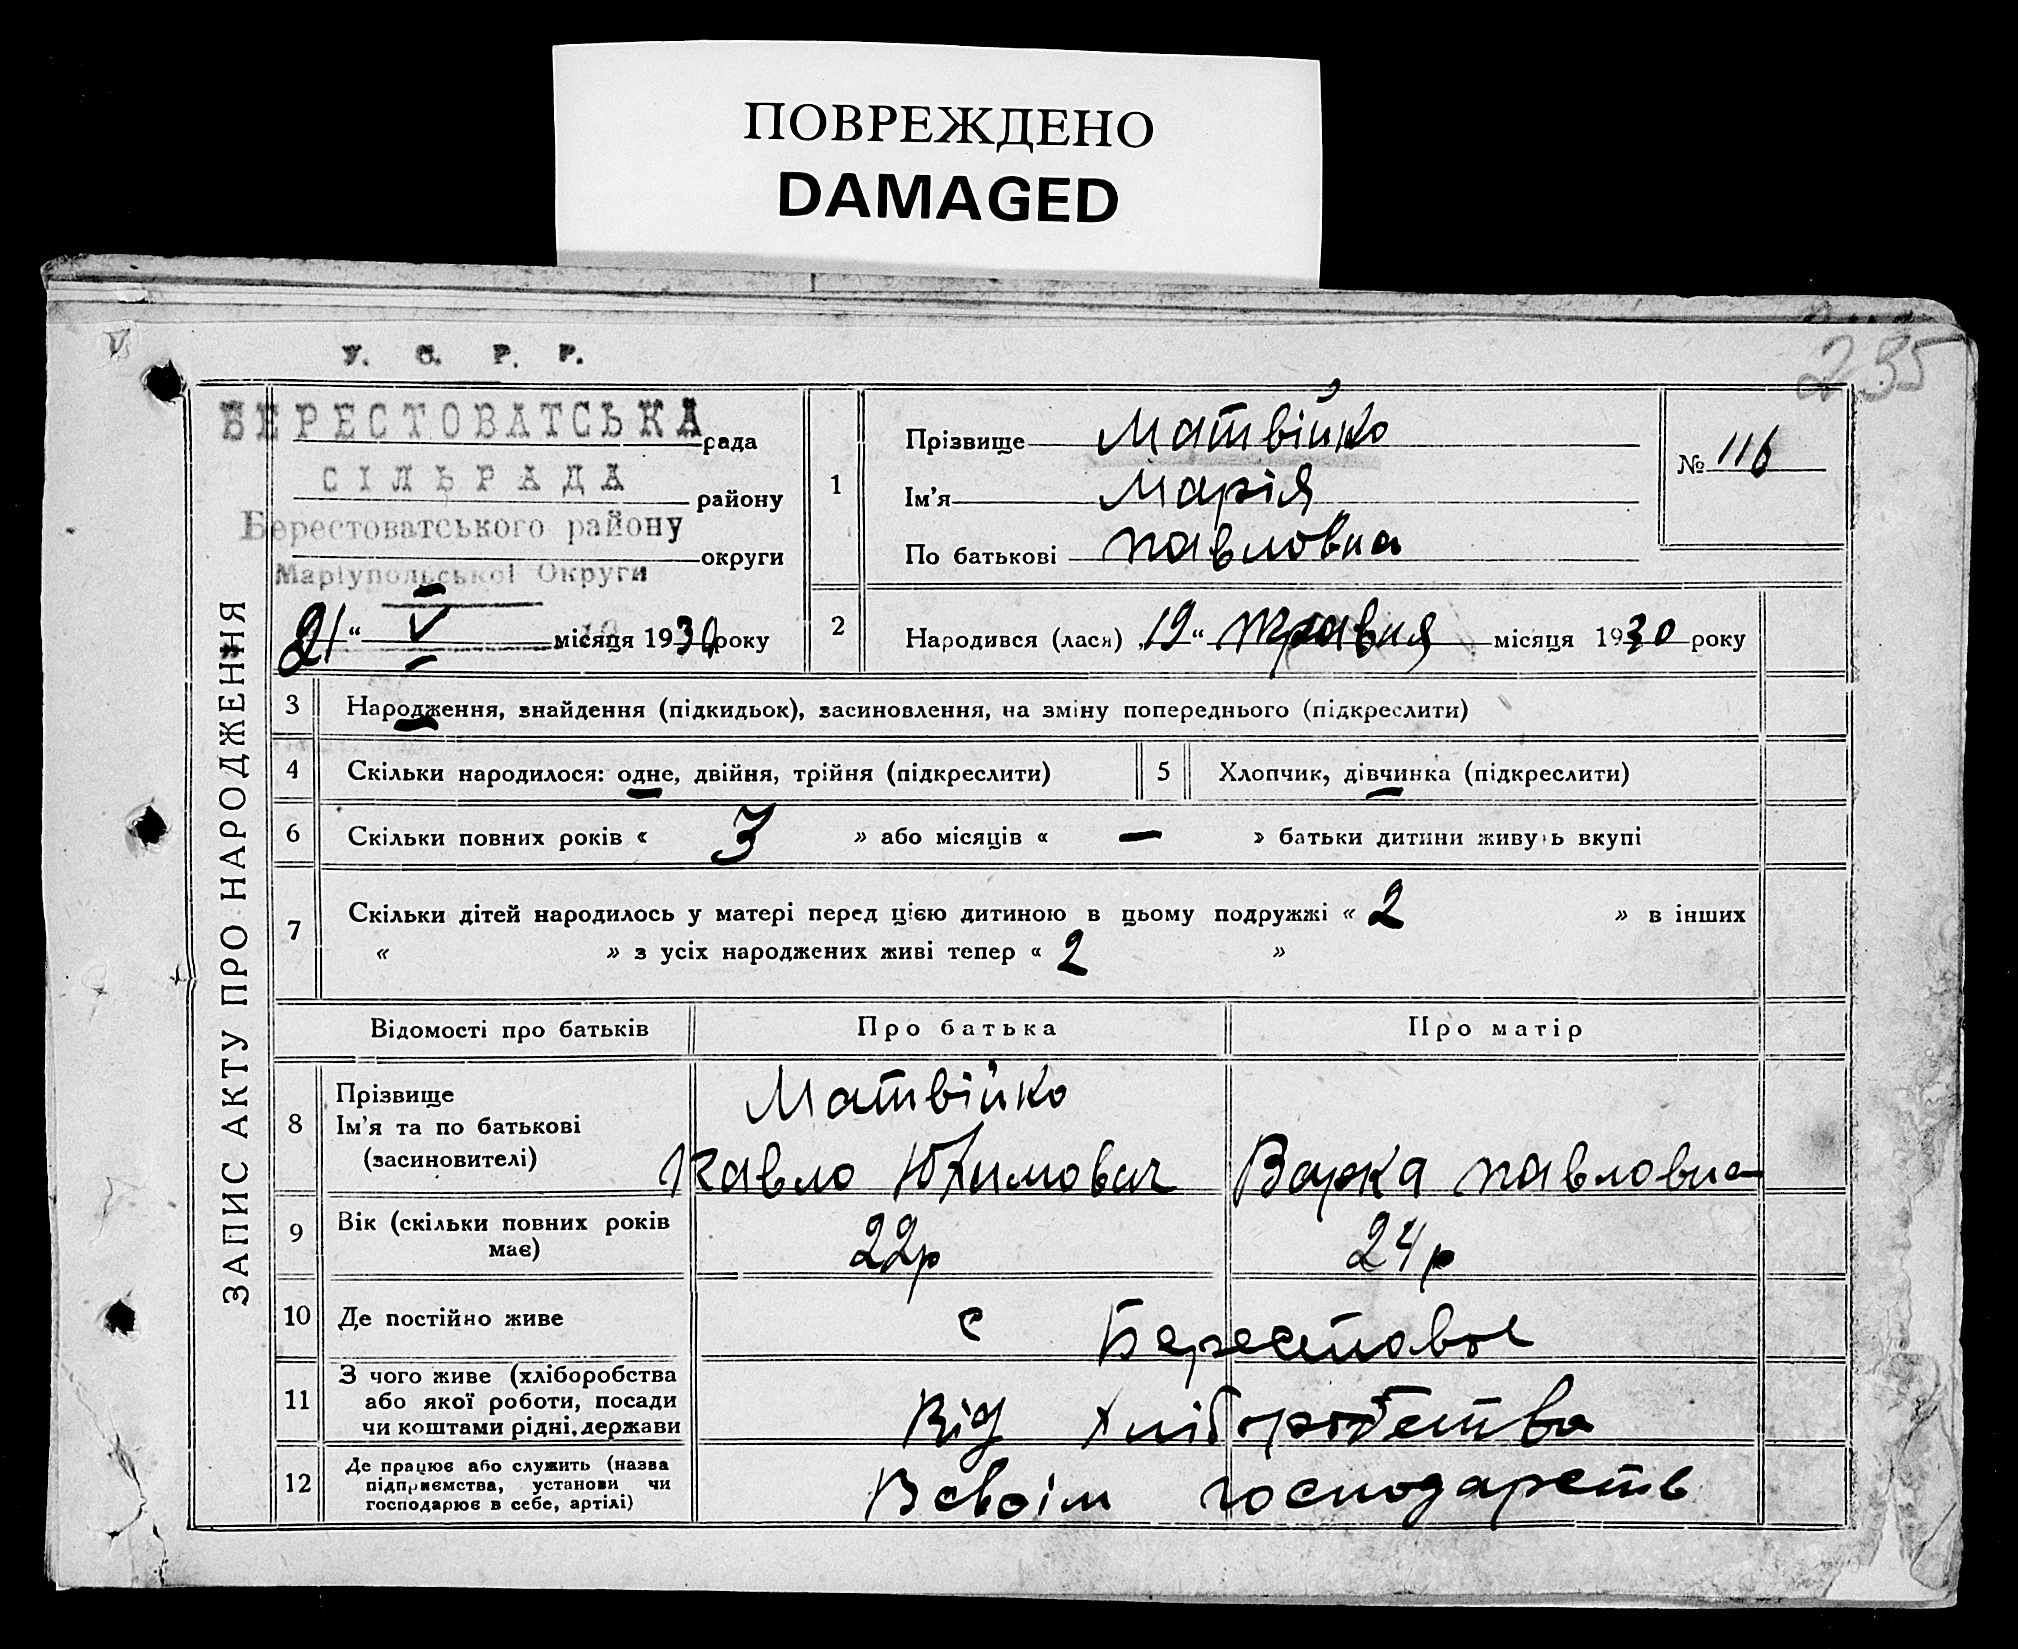 ПОВРЕЖДЕНО
DAMAGED
235
У. С. Р. Р.
ЗАПИС АКТУ ПРО НАРОДЖЕННЯ
БЕРЕСТОВАТСЬКА рада
СІЛЬРАДА району
Берестоватського району
округи
Маріупольської Округи
21 " V місяця 1930 року
1
Прізвище Матвійко
Ім'я Марія
По батькові Павловна
№ 116
2 Народився (лася) „19" травня місяця 1930 року
3 Народження, знайдення (підкидьок), засиновлення, на зміну попереднього (підкреслити)
4 Скільки народилося: одне, двійня, трійня (підкреслити) 5 Хлопчик, дівчинка (підкреслити)
6 Скільки повних років « 3 » або місяців « — » батьки дитини живуть вкупі
7 Скільки дітей народилось у матері перед цією дитиною в цьому подружжі « 2 » в інших
« » з усіх народжених живі тепер « 2 »
Відомості про батьків Про батька Про матір
8 Прізвище
Ім'я та по батькові
(засиновителі)
Матвійко
Павло Юхимович Варка Павловна
9 Вік (скільки повних років
має)
22р 24р
10 Де постійно живе с Берестовое
11 З чого живе (хліборобства
або якої роботи, посади
чи коштами рідні, держави
Від хліборобства
12 Де працює або служить (назва
підприємства, установи чи
господарює в себе, артілі)
В своім господарств